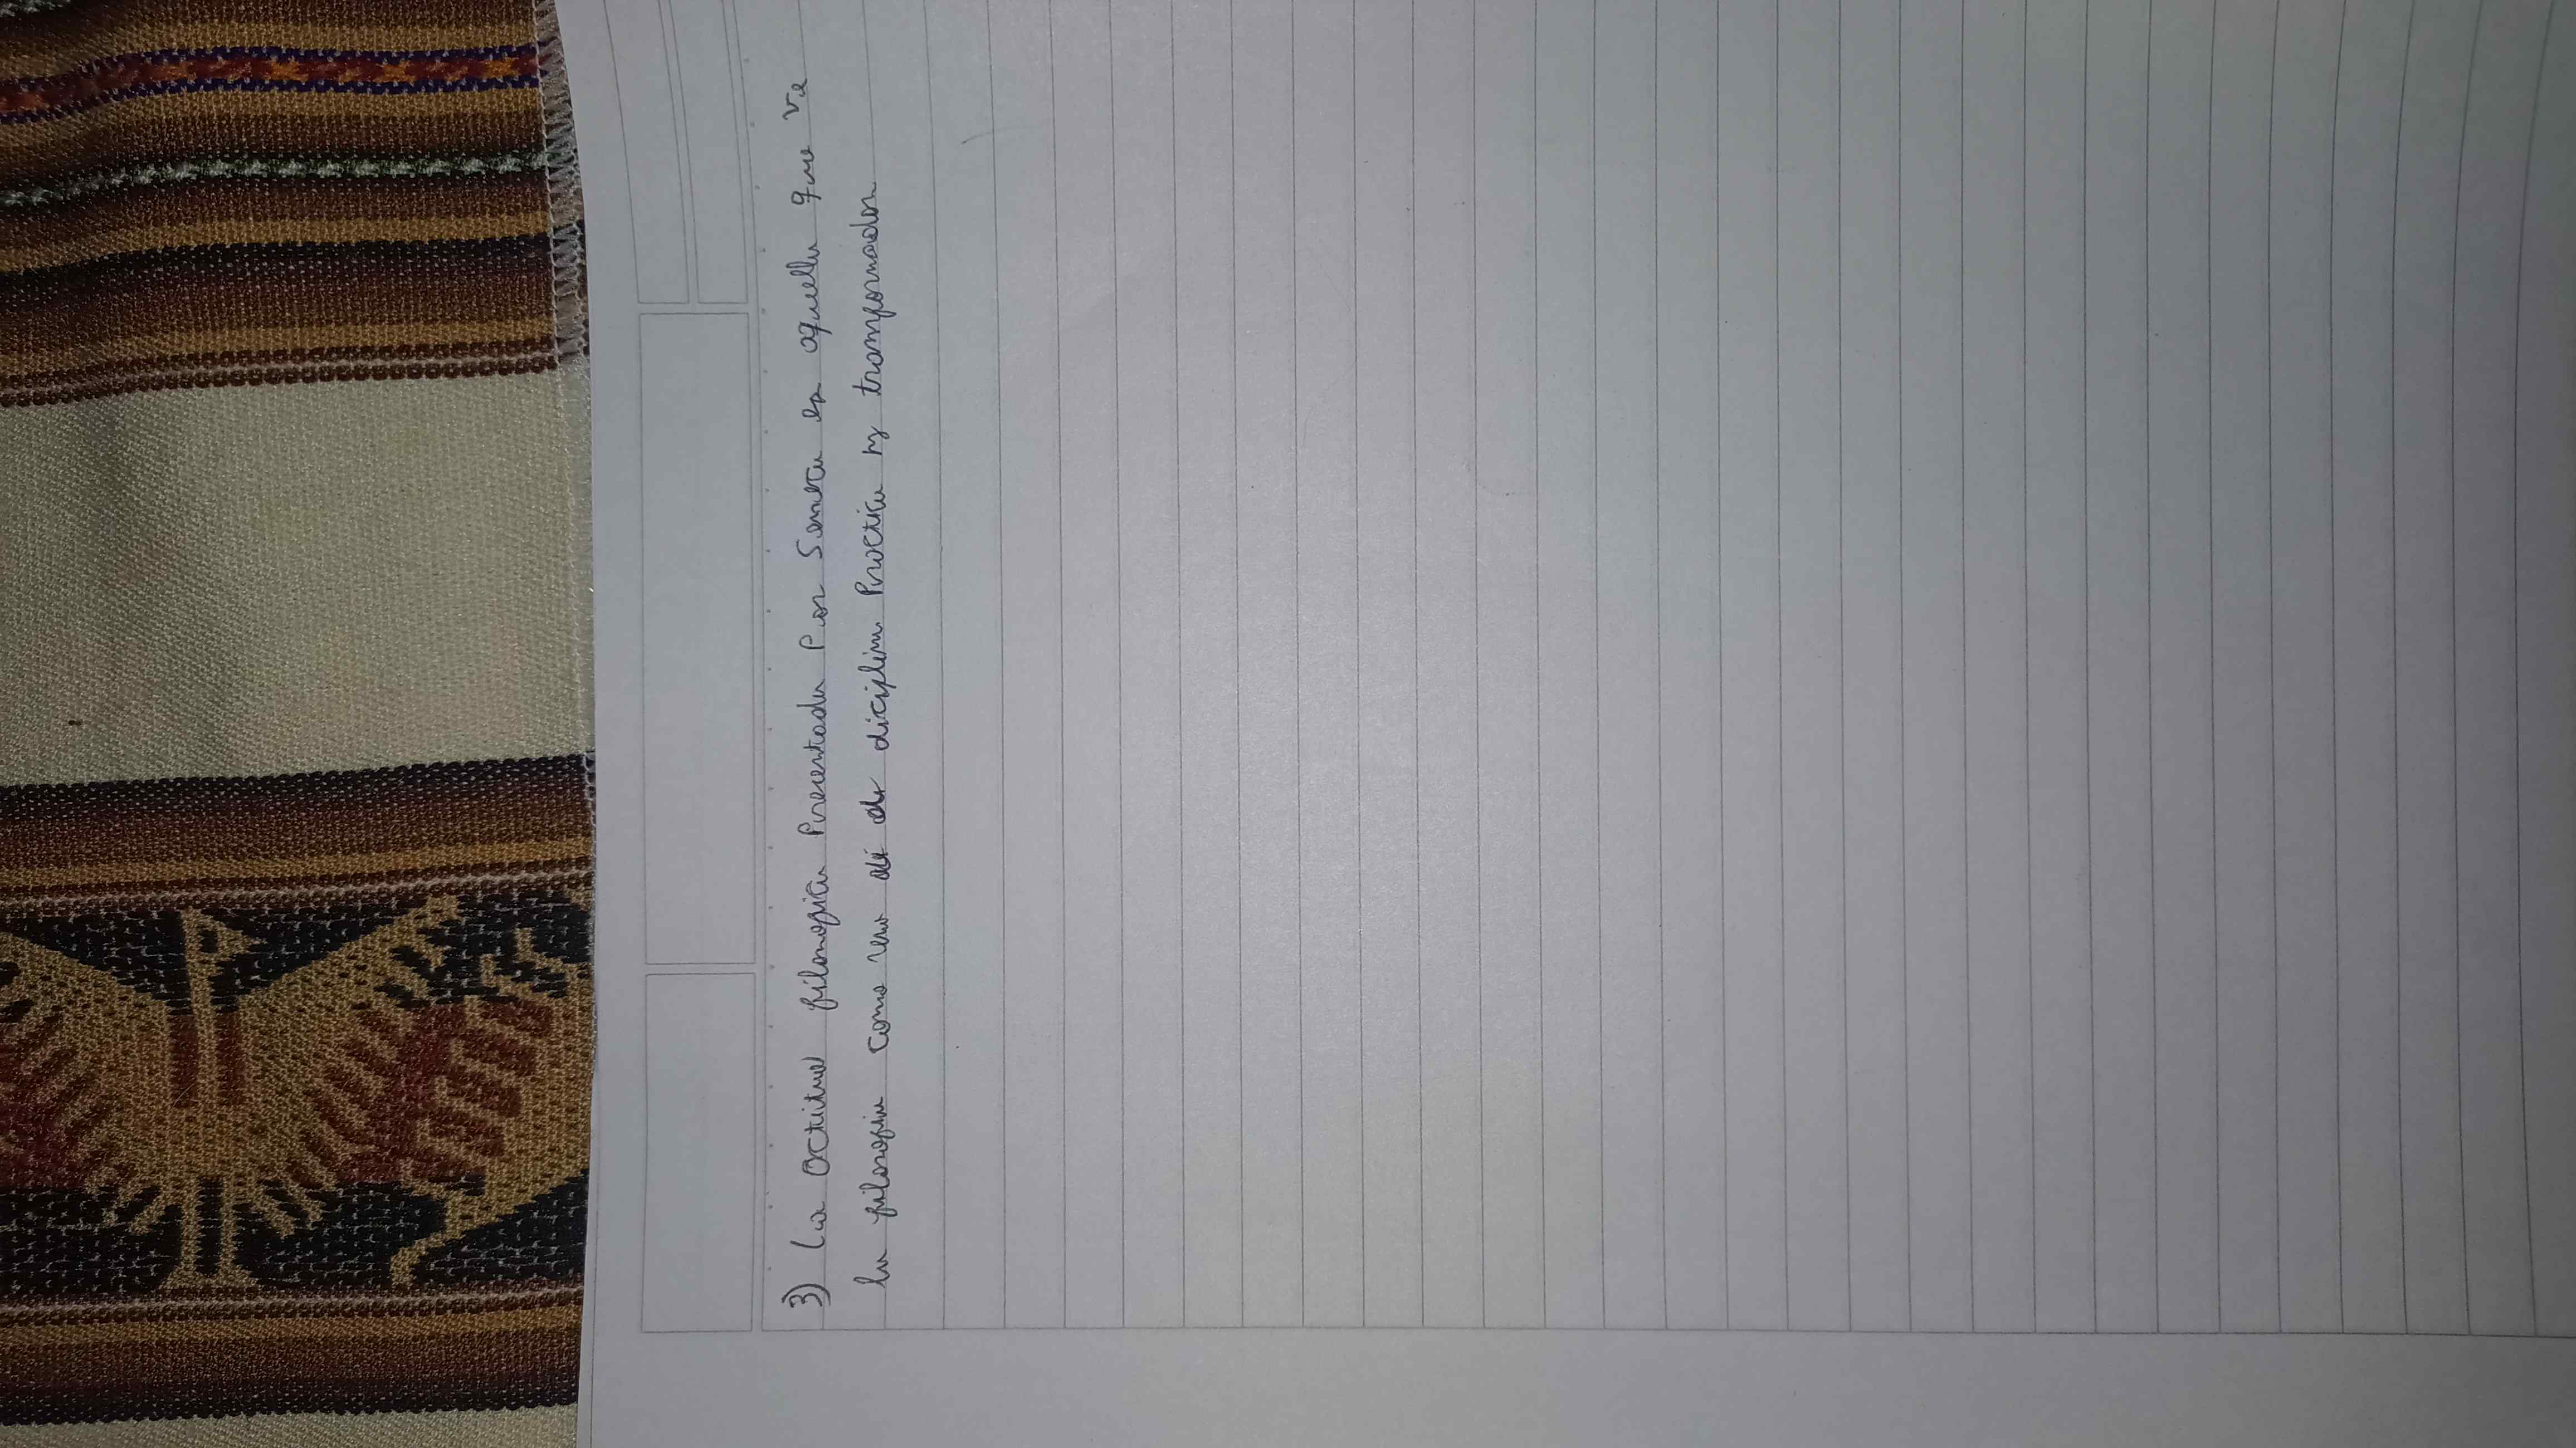 3) La actitud filosofica Precentada Por Seneca es aquella que ve
la filosofia como una de diciplina Practica y transformador